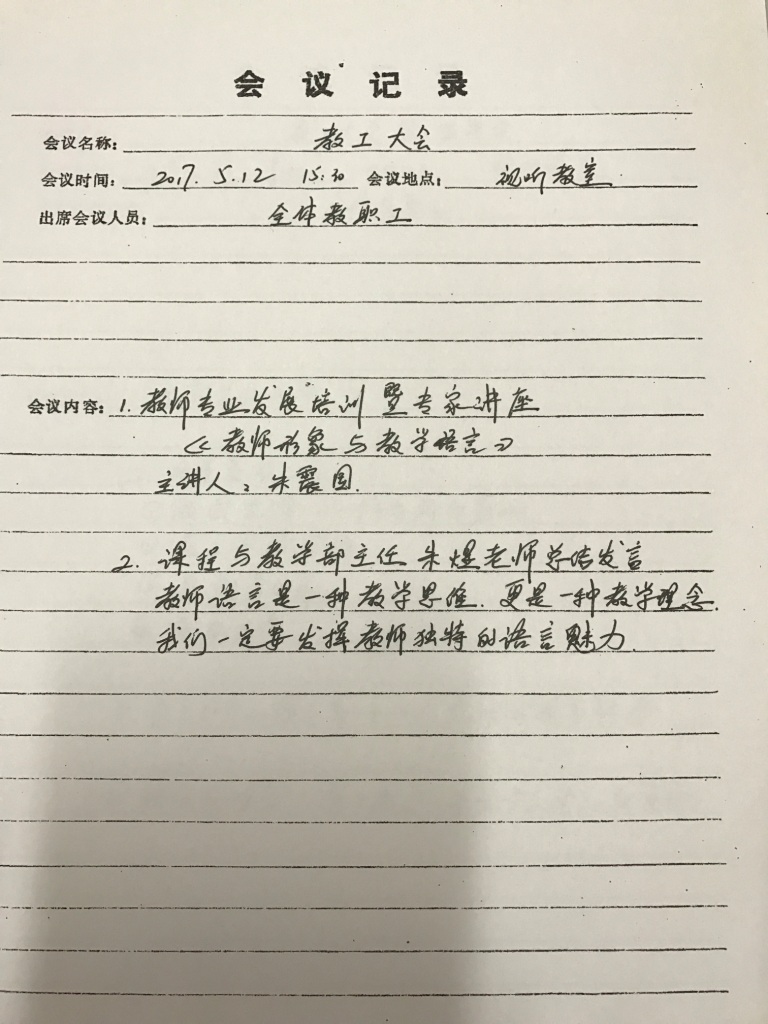 会议记录
会议名称: 教工大会
会议时间: 2017.5.12 15:30 会议地点: 视听教室
出席会议人员: 全体教职工
会议内容: 1.教师专业发展培训暨专家讲座
《教师形象与教学语言》
主讲人:朱震国.
2.课程与教学部主任朱煜老师总结发言
教师语言是一种教学思维.更是一种教学理念.
我们一定要发挥教师独特的语言魅力.